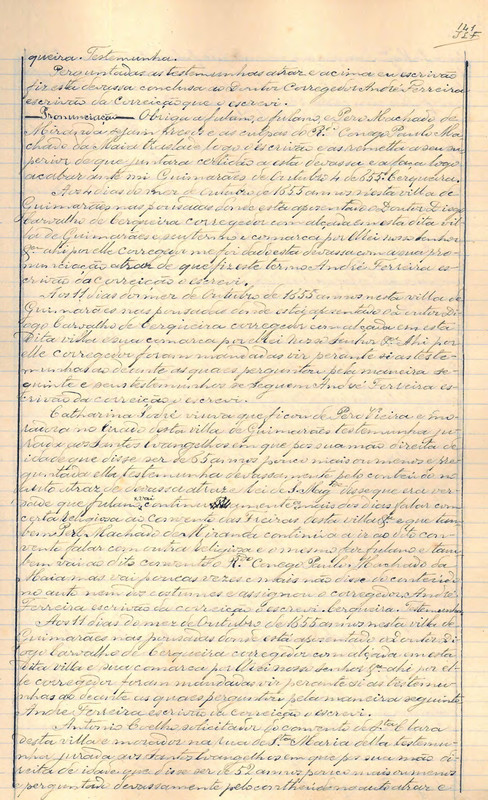 141
queira. Testemunha.
Perguntadas as testemunhas atraz e acima eu escrivão
fiz esta devassa conclusa ao Doutor Corregedor André Ferreira
escrivão da Correição que o escrevi.
Pronunciação — Obriga a fulano, e fulano, e Pero Machado de
Miranda sejam prezos e as culpas do Rdo Conego Paulo Ma-
chado da Maia traslade logo o escrivão e as remetta a seu su-
perior de que juntará certidão a esta devassa e a faça logo
acabar ante mi Guimarães de Outubro 4 de 655. Cerqueira.
Aos 4 dias do mez de Outubro de 1655 annos nesta villa de
Guimarães nas pousadas donde está apousentado o Doutor Diogo
Carvalho de Cerqueira corregedor com alçada em esta dita vil-
la de Guimarães e seu termo e comarca por el Rei nosso Senhor
Ett ahi por elle corregedor me foi dada esta devassa com a sua pro-
nunciação atraz de que fiz este termo André Ferreira es-
crivão da correição o escrevi.
Aos 11 dias do mez de Outubro de 1655 annos nesta villa de
Guimarães nas pousadas donde está apousentado o Doutor Di-
ogo Carvalho de Cerqueira corregedor com alçada em esta
dita villa e sua comarca por el Rei Nosso Senhor Ett ahi por
elle corregedor foram mandadas vir perante si as teste-
munhas ao deante as quaes perguntou pela maneira se-
guinte e seus testemunhos se seguem André Ferreira es-
crivão da correição o escrevi.
Catharina viuva que ficou de Pero Vieira e mo-
radora no desta villa de Guimarães testemunha ju-
rada aos Santos Evangelhos em que pos sua mão direita de
idade que disse ser de 65 annos pouco mais ou menos e per-
guntada ella testemunha devassamente pelo conteúdo no
auto atraz de devassa atraz e lei de S. Magde disse que era ver-
dade que fulano vai continuamente mais dos dias falar com
certa religiosa ao Convento das Freiras desta villa Ett e que tam-
bem Pero Machado de Miranda continua a ir ao dito con-
vento falar com outra religiosa e o mesmo faz fulano e tam-
bem vai ao dito convento o Rdo Conego Paulo Machado da
Maia mas vai poucas vezes e mais não disse do conteúdo
no auto nem dos costumes e assignou o corregedor André
Ferreira escrivão da correição o escrevi. Cerqueira. Testemunha
Aos 11 dias do mez de Outubro de 1655 annos nesta villa de
Guimarães nas pousadas donde está apousentado o Doutor Di-
ogo Carvalho de Cerqueira corregedor com alçada em esta
dita villa e sua comarca por el Rei nosso Senhor Ett ahi por el-
le corregedor foram mandadas vir perante si as testemu-
nhas ao deante as quaes perguntou pela maneira seguinte
André Ferreira escrivão da correição o escrevi.
Antonio Coelho solicitador do convento de Sta Clara
desta villa e morador na rua de Sta Maria della testemu-
nha jurada aos Santos Evangelhos em que pos sua mão di-
reita de idade que disse ser de 52 annos pouco mais ou menos
e perguntado devassamente pelo contheudo no auto atraz e